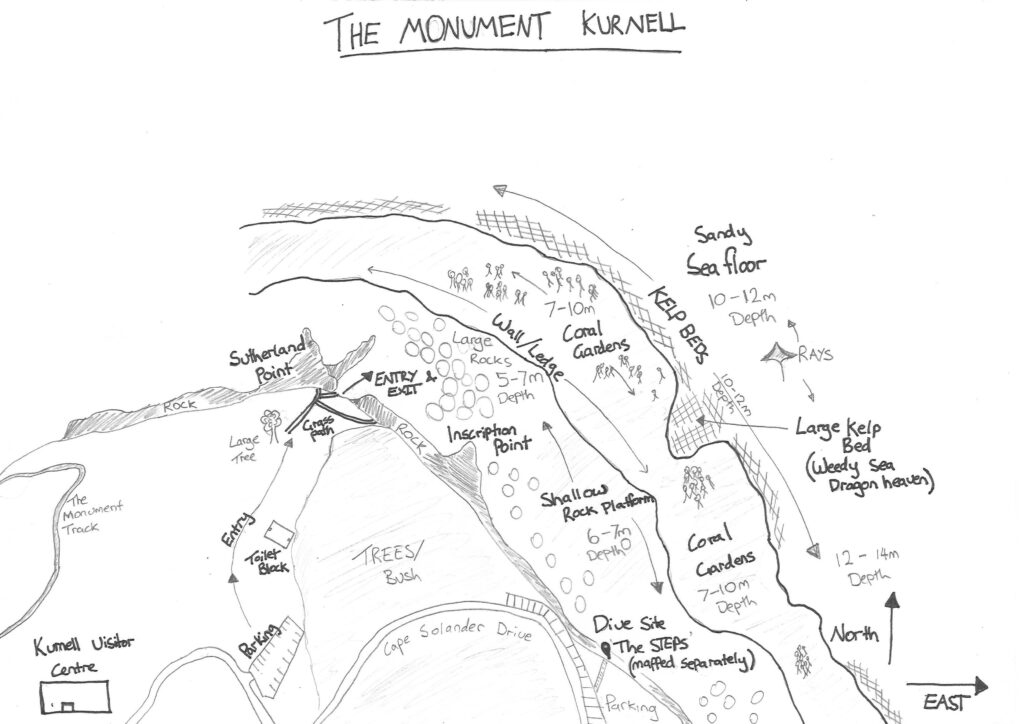 THE MONUMENT KURNELL
Sandy
Sea floor
10-12m
Depth
KELP BEDS
7-10m
Coral
Gardens
Wall/Ledge
Large
Rocks
5-7m
Depth
RAYS
10-12m
Depth
Sutherland
Point
ENTRY &
EXIT
ROCK
Grass
path
ROCK
Large
Tree
Inscription
Point
Large Kelp
Bed
(Weedy Sea
Dragon heaven)
The
Monument
Track
Shallow
Rock Platform
6-7m
Depth
Entry
Toilet
Block
TREES/
Bush
Coral
Gardens
7-10m
Depth
12-14m
Depth
Cape Solander Drive
Parking
Dive Site
'The STEPS'
(mapped separately)
North
Kurnell Visitor
Centre
Parking
EAST